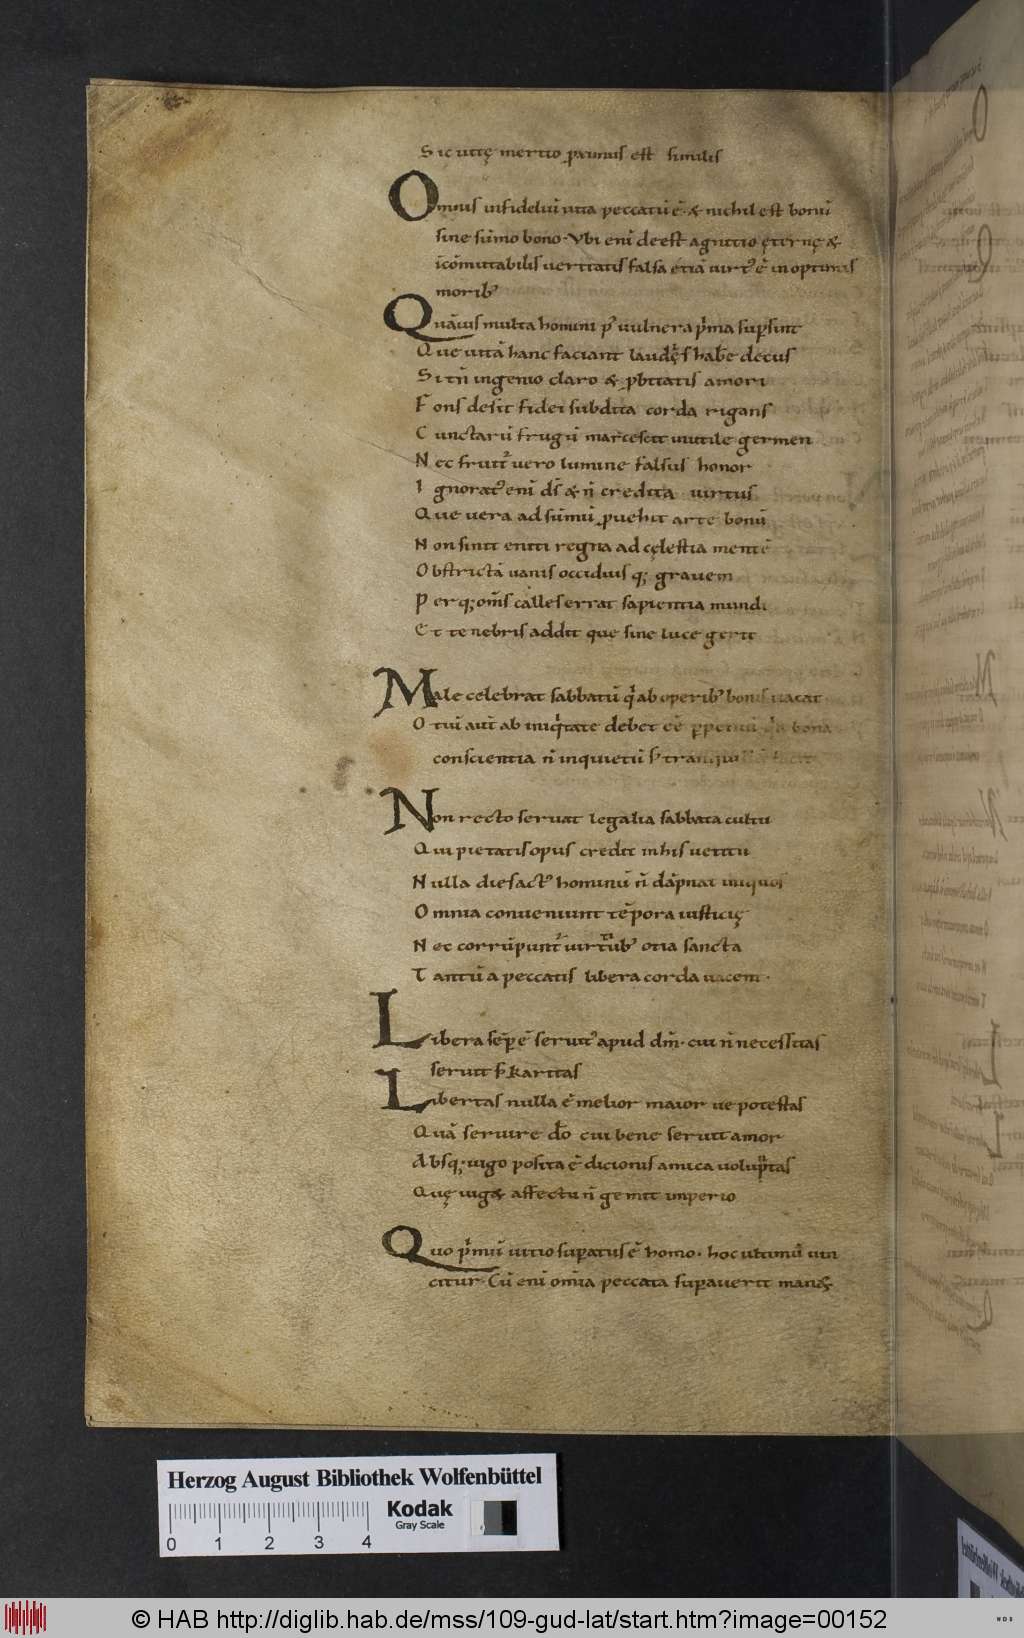 Sic uitę merito proximus est similis
Omnis infideliũ uita peccatũ ẽ & nichil est bonũ
sine sũmo bono · Vbi enĩ deest agnitio ęternę &
ĩcõmutabilis ueritatis falsa etiã uirtꝰ ẽ in optimis
moribꝰ
Quãuis multa homini pꝰ uulnera prima supsint
Que uitã hanc faciant laudęs habẽ decus
Si tñ ingenio claro & pbitatis amori
Fons desit fidei subdita corda rigans
Cunctarũ frugũ marcescit inutile germen
Nec fruitꝰ uero lumine falsus honor
Ignoratꝰ enĩ dš & ñ credita uirtus
Que uera ad sũmũ puehit arte bonũ
Non sinit eniti regna ad cęlestia mentẽ
Obstrictã uanis occiduis q; grauem
Perq; om̃s calles errat sapientia mundi
Et tenebris addit que sine luce gerit
Male celebrat sabbatũ qͥ ab operibꝰ bonis uacat·
Otiũ aut̃ ab iniqͥtate debet eẽ ppetuũ· qͥa bona
conscientia ñ inquietũ s; tranquillũ facit
Non recto seruat legalia sabbata cultu
Qui pietatis opus credit in his uetitũ
Nulla dies actꝰ hominũ ñ dãpnat iniquos
Omnia conueniunt tẽpora iusticię
Nec corrũpuntꝰ uirtutibꝰ otia sancta
Tantũ a peccatis libera corda uacent·
Libera sẽp ẽ seruitꝰ apud dm̃· cui ñ necessitas
seruit s; karitas
Libertas nulla ẽ melior maior ue potestas
Quã seruire dõ cui bene seruit amor
Absq; iugo posita ẽ dicionis amica uoluptas
Quę uig& affectu ñ gemit imperio
Quo pͥmũ uitio supatus ẽ homo· hoc ultimũ uin
citur· Cũ enĩ om̃ia peccata supauerit man&
Herzog August Bibliothek Wolfenbüttel
Kodak
Gray Scale
0 1 2 3 4
© HAB http://diglib.hab.de/mss/109-gud-lat/start.htm?image=00152